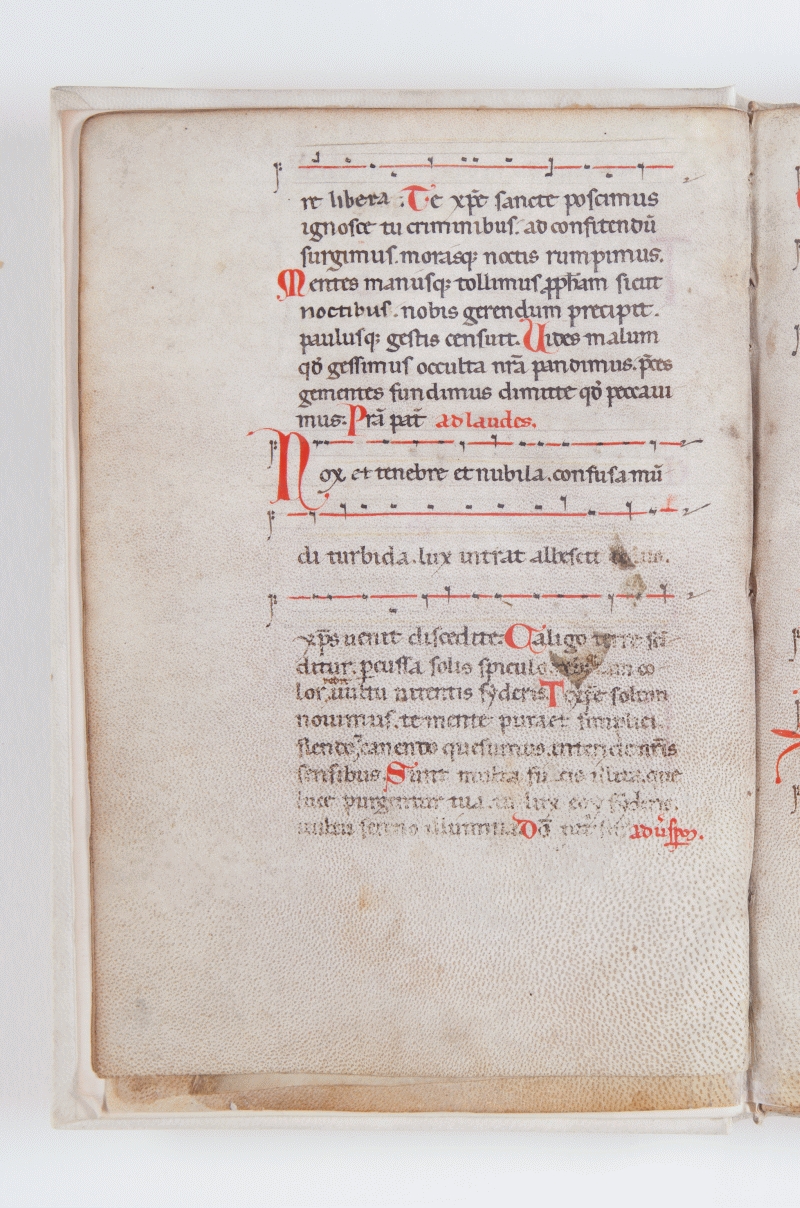 re libera. Te xp̄e sancte poscimus
ignosce tu criminibus. ad confitendū
surgimus. morasq; noctis rumpimus.
Mentes manusq; tollimus ꝓph̄am sicut
noctibus. nobis gerendum precipit.
paulusq; gestis censuit. Uides malum
qđ gessimus occulta nr̄a pandimus. p̄ces
gementes fundimus dimitte qđ peccaui
mus. Prā pat̄ ad laudes.
Nox et tenebre et nubila. confusa mū
di turbida. lux intrat albescit
xp̄s uenit discedite. Caligo terre sci
ditur. ꝑcussa solis spiculo. co
lor. uultu nitentis syderis. Te xp̄e solum
nouimus. te mente pura et simplici
flendo et canendo quesumus. intende nr̄is
sensibus. Sunt multa
luce purgentur tua. lux syderis.
uultu sereno illumina. Dō